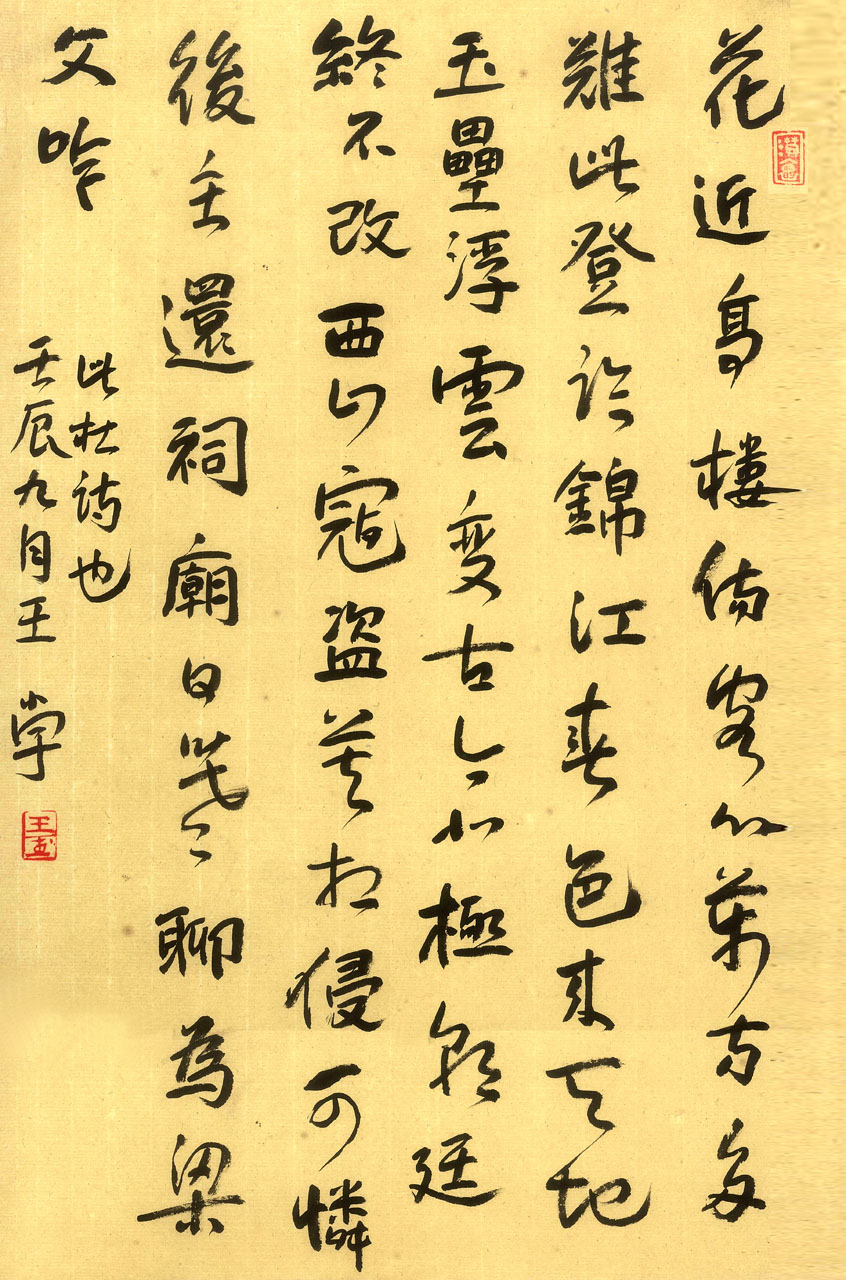 花近高樓傷客心萬方多
難此登臨錦江春色來天地
玉壘浮雲变古今北極朝廷
終不改西山寇盜莫相侵可憐
後主還祠廟日暮聊為梁
父吟
此杜詩也
壬辰九月王